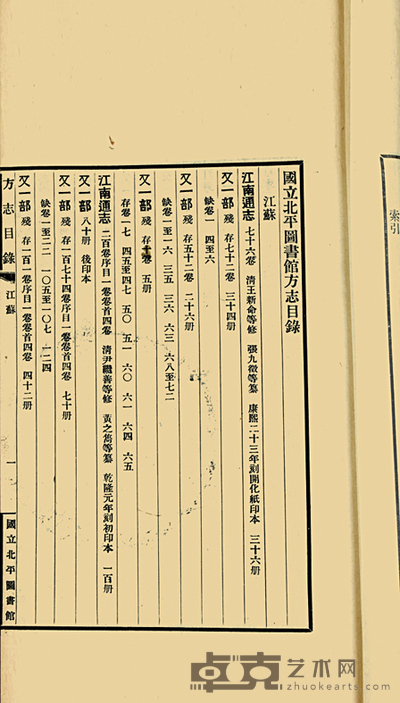 索引
國立北平圖書館方志目錄
江蘇
江南通志 七十六卷 清王新命等修 張九徵等纂 康熙二十三年刻開化紙印本 三十六册
又一部 殘 存七十二卷 三十四册
缺卷一 四至六
又一部 殘 存五十二卷 二十六册
缺卷一至一六 三五 三六 六三 六八至七二
又一部 殘 存 卷 五册
存卷一七 四五至四七 五〇 五一 六〇 六一 六四 六五
江南通志 二百卷序目一卷卷首四卷 清尹繼善等修 黃之雋等纂 乾隆元年刻初印本 一百册
又一部 八十册 後印本
又一部 殘 存一百七十四卷序目一卷卷首四卷 七十册
缺卷一至二二 一〇五至一〇七 一二四
又一部 殘 存一百一卷序目一卷卷首四卷 四十二册
方志目錄 江蘇 一 國立北平圖書館
卓克艺术网
zhuokearts.com